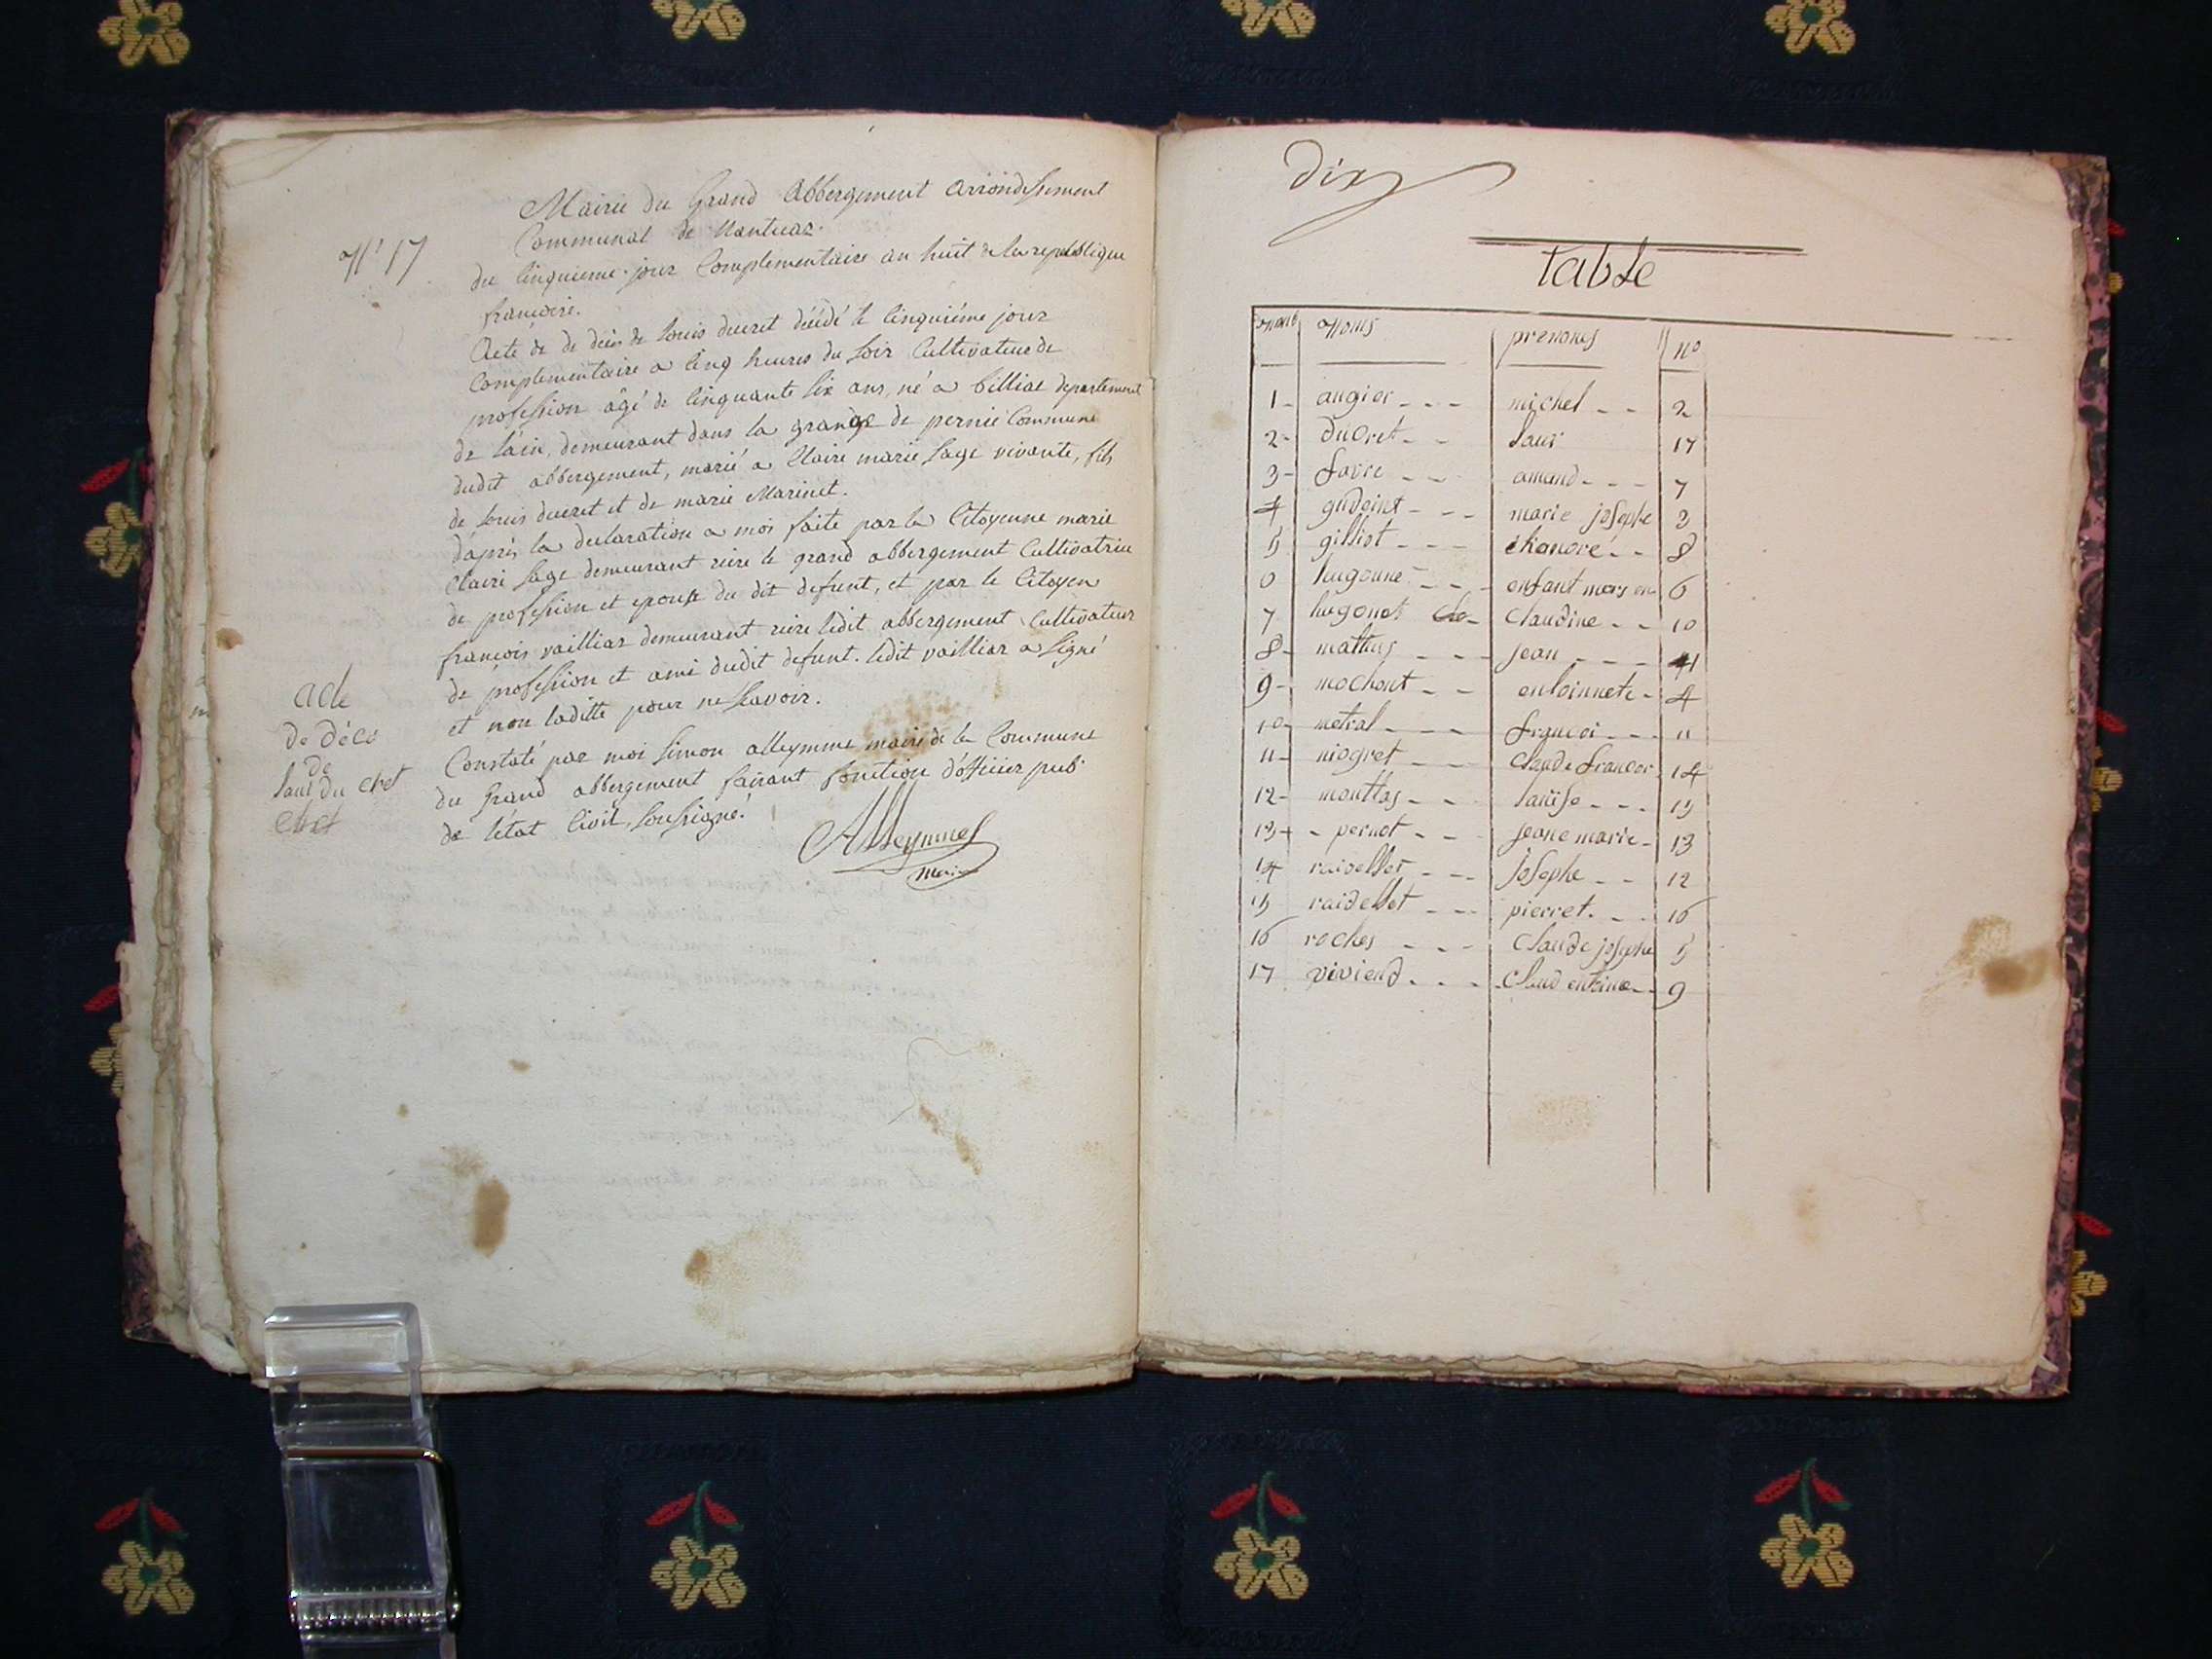 N° 17
Mairie du Grand Abbergement arrondissement
Communal de Nantuaz.
du Cinquieme jour Complementaire an huit de la republique
francoise.
Acte de de deces de louis ducret décédé le cinquiéme jour
Complementaire a cinq heures du soir Cultivateur de
profession âgé de cinquante six ans, né a billiat departement
de l'ain, demeurant dans la grange de pernie Commune
dudit abbergement, marié a Claire marie Sage vivante, fils
de louis ducret et de marie Marinet.
d'aprés la declaration a moi faite par la Citoyenne marie
Claire Sage demeurant riere le grand abbergement Cultivatrice
de profession et epouse du dit defunt, et par le Citoyen
francois vailliar demeurant riere ledit abbergement Cultivateur
de profession et ami dudit defunt. ledit vailliar a Signé
et non laditte pour ne scavoir.
Constaté par moi Simon alleymme maire de la Commune
du Grand abbergement faisant fonction d'officier pub
de l'état Civil, soussigné.
Alleymmes
Maire
acte
de déces
de
Louis du cret
cret
dix
table
noms prenoms n°
1 - augier - - - michel - - 2
2 - ducret - - Louis 17
3 - favre - - amand - - - 7
4 - - - marie josephe 3
5 gilliot - - - - - 8
6 hugonne - - - enfant mors en 6
7 hugonet claudine - - 10
8 - mathieu - - - jean - - - 11
9 - mochont - - entoinnete - 4
10 - metral - - - francoi - - - 11
11 - niogret - - - claude francois 14
12 - mouttas - - louise - - - 15
13 - - pernot - - jeane marie - 13
14 raidellet - - - josephe - - 12
15 raidellet - - - pierret. - - 16
16 roches - - - claude josephe 5
17 viviend - - - - claud entoine - - 9